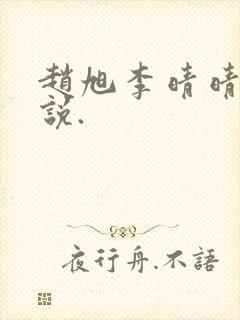 趙旭李晴晴
說.
夜行舟.不語